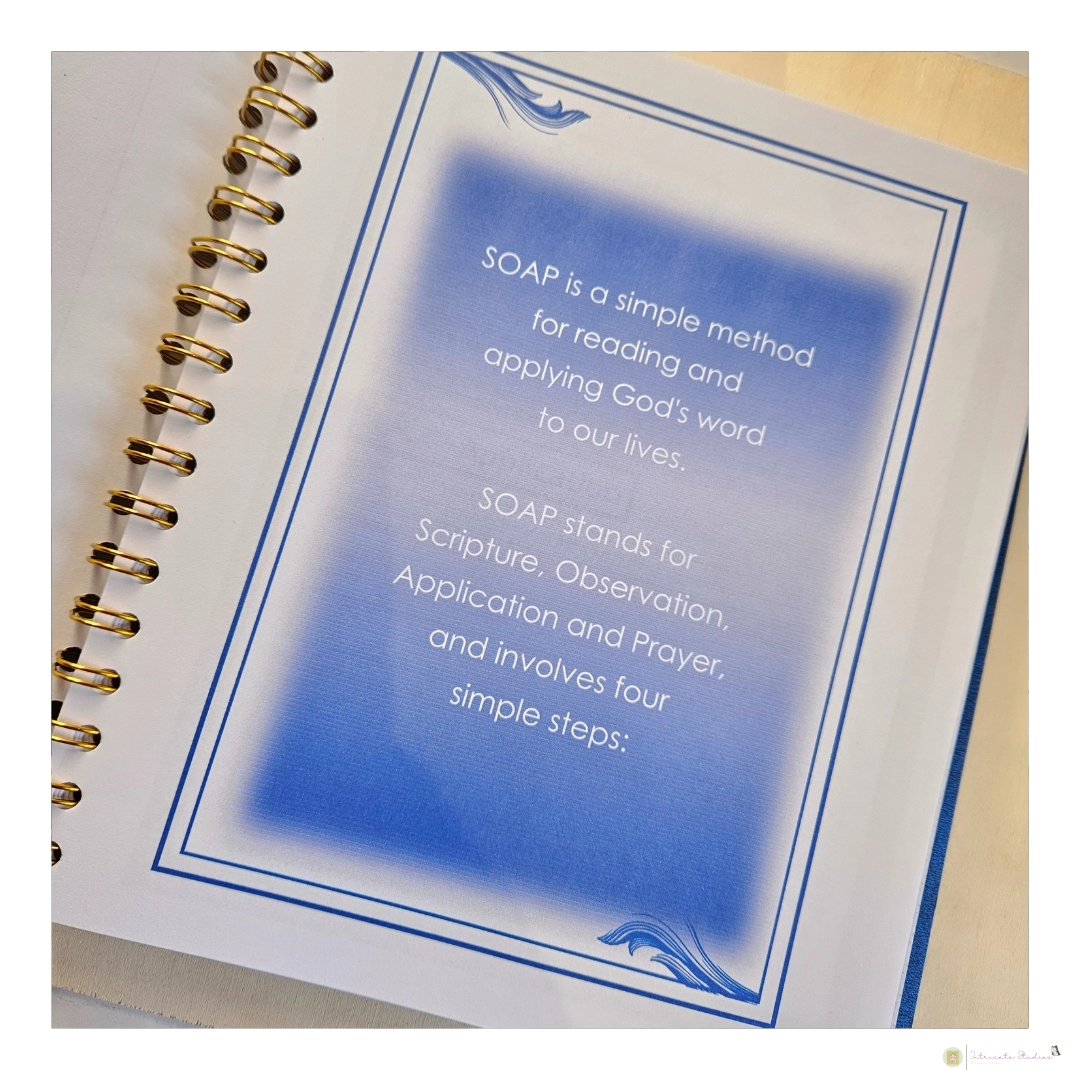 SOAP is a simple method
for reading and
applying God's word
to our lives.
SOAP stands for
Scripture, Observation,
Application and Prayer,
and involves four
simple steps:
Intricate Studies